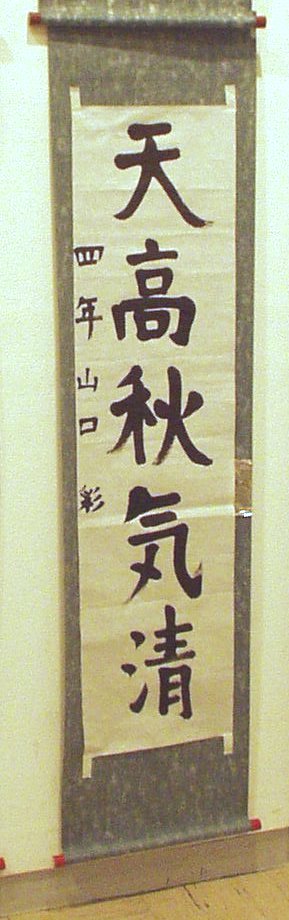 天高秋気清
四年山口 彩